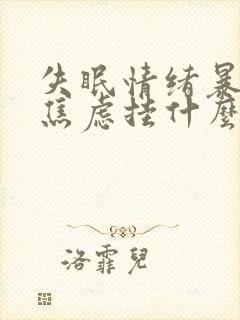 失眠情绪暴
焦虑挂什麼
洛霏兒